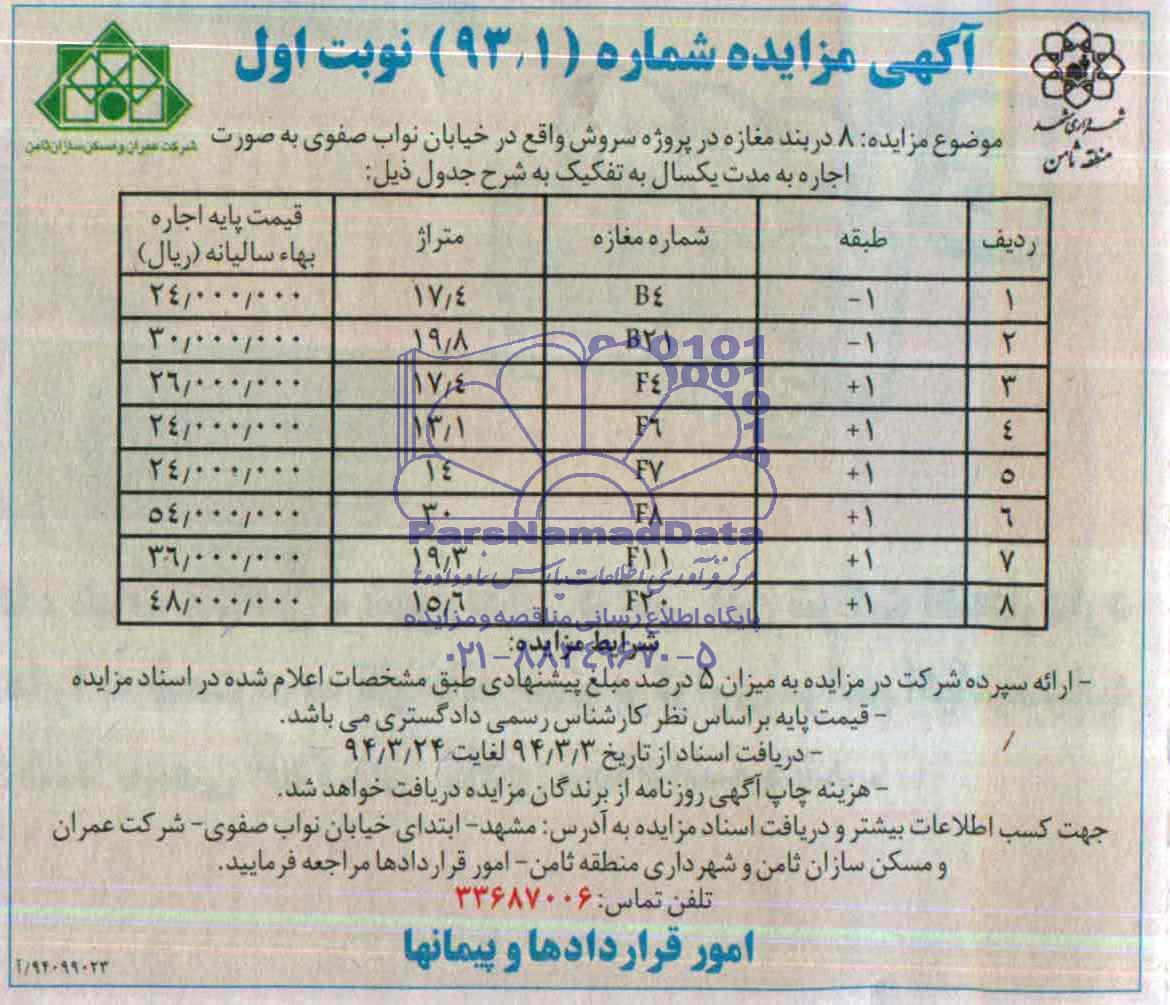 آگهی مزایده شماره (۹۳/۱) نوبت اول
شهرداری مشهد
منطقه ثامن
شرکت عمران و مسکن سازان ثامن
موضوع مزایده: ۸ دربند مغازه در پروژه سروش واقع در خیابان نواب صفوی به صورت
اجاره به مدت یکسال به تفکیک به شرح جدول ذیل:
ردیف طبقه شماره مغازه متراژ قیمت پایه اجاره بهاء سالیانه (ریال)
۱ -۱ B٤ ۱۷/٤ ۲٤/۰۰۰/۰۰۰
۲ -۱ B۲۱ ۱۹/۸ ۳۰/۰۰۰/۰۰۰
۳ +۱ F٤ ۱۷/٤ ۲٦/۰۰۰/۰۰۰
٤ +۱ F٦ ۱۳/۱ ۲٤/۰۰۰/۰۰۰
٥ +۱ F۷ ۱٤ ۲٤/۰۰۰/۰۰۰
٦ +۱ F۸ ۳۰ ٥٤/۰۰۰/۰۰۰
۷ +۱ F۱۱ ۱۹/۳ ۳٦/۰۰۰/۰۰۰
۸ +۱ F۲۰ ۱٥/٦ ٤۸/۰۰۰/۰۰۰
ParsNamadData
مرکز فرآوری اطلاعات پارس نماد داده ها
پایگاه اطلاع رسانی مناقصه و مزایده
۰۲۱-۸۸۳۴۹۶۷۰-۵
شرایط مزایده:
- ارائه سپرده شرکت در مزایده به میزان ۵ درصد مبلغ پیشنهادی طبق مشخصات اعلام شده در اسناد مزایده
- قیمت پایه براساس نظر کارشناس رسمی دادگستری می باشد.
- دریافت اسناد از تاریخ ۹۴/۳/۳ لغایت ۹۴/۳/۲۴
- هزینه چاپ آگهی روزنامه از برندگان مزایده دریافت خواهد شد.
جهت کسب اطلاعات بیشتر و دریافت اسناد مزایده به آدرس: مشهد- ابتدای خیابان نواب صفوی- شرکت عمران
و مسکن سازان ثامن و شهرداری منطقه ثامن- امور قراردادها مراجعه فرمایید.
تلفن تماس: ۳۳۶۸۷۰۰۶
امور قراردادها و پیمانها
۹۴۰۹۹۰۲۳/آ